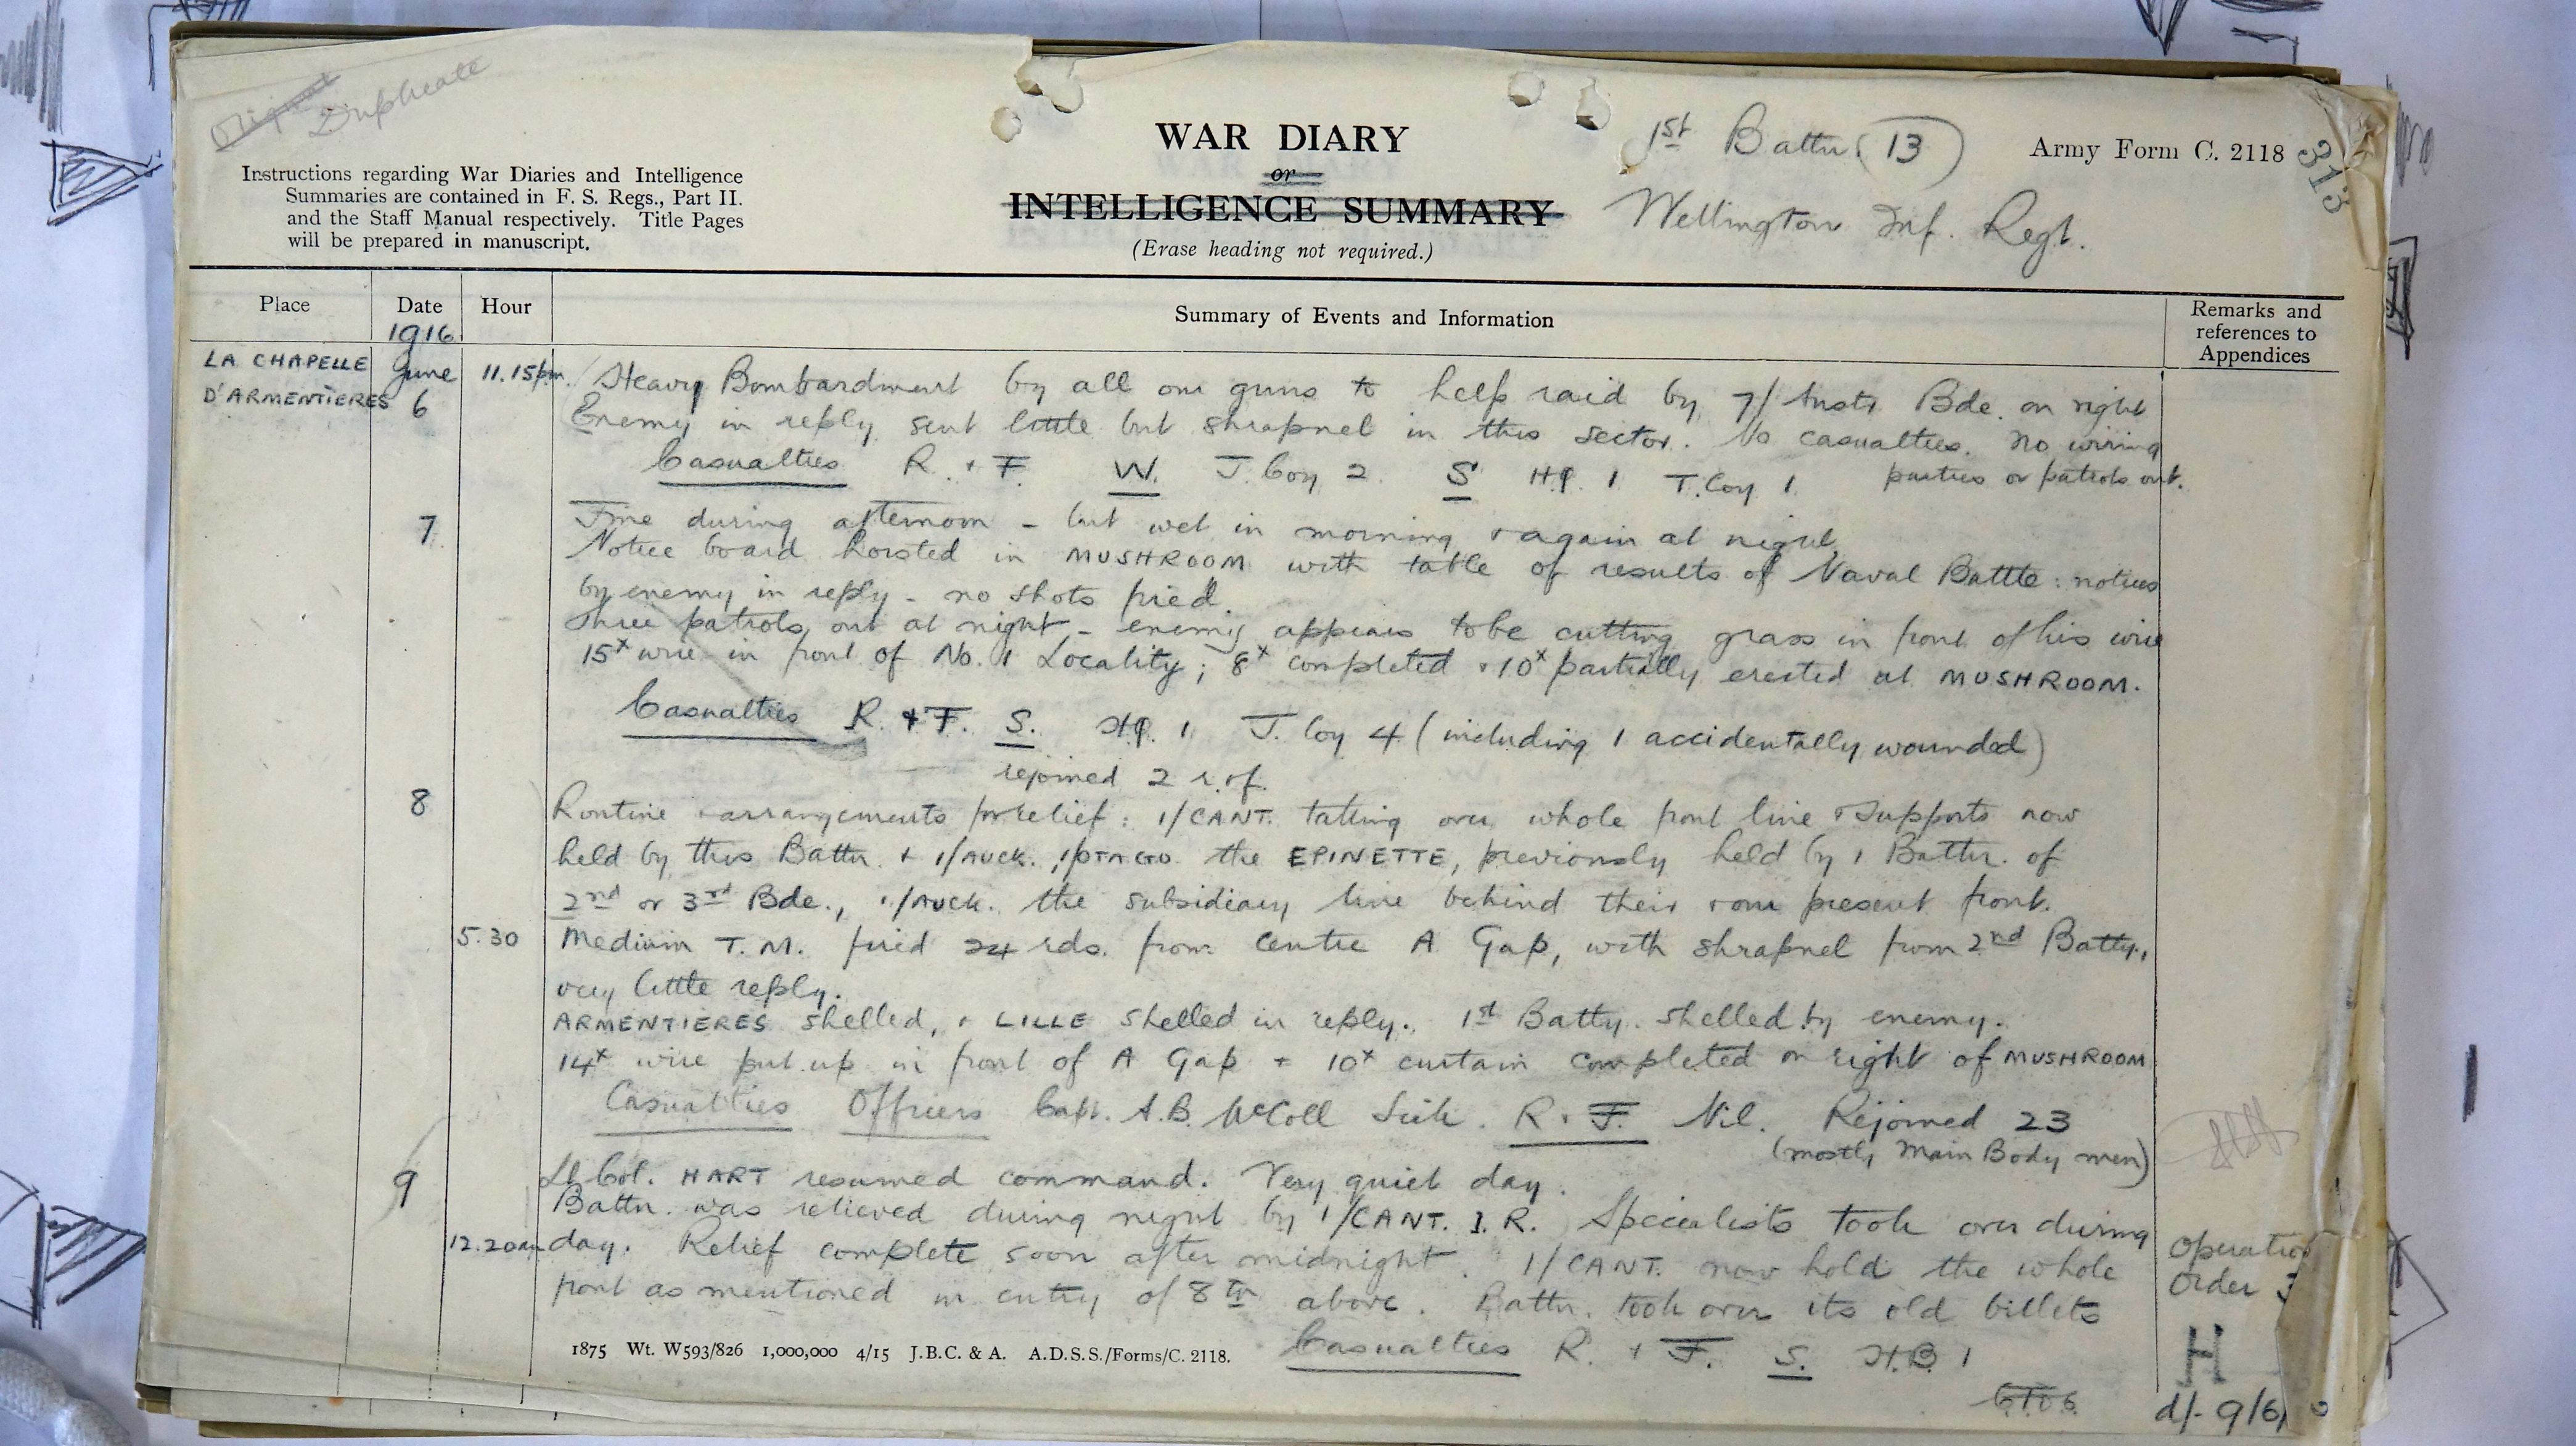 Original Duplicate
Instructions regarding War Diaries and Intelligence
Summaries are contained in F. S. Regs., Part II.
and the Staff Manual respectively. Title Pages
will be prepared in manuscript.
WAR DIARY
or
INTELLIGENCE SUMMARY
(Erase heading not required.)
1st Battn. 13
Wellington Inf. Regt.
Army Form C. 2118
313
Place Date Hour Summary of Events and Information Remarks and
references to
Appendices
1916
LA CHAPELLE June 11.15pm. Heavy Bombardment by all our guns to help raid by 7/Austr Bde. on right
D'ARMENTIERES 6 Enemy in reply sent little but shrapnel in this sector. No casualties. No wiring
parties or patrols out.
Casualties R. + F. W. J. Coy 2. S HQ. 1 T. Coy 1.
7 Fine during afternoon - but wet in morning + again at night.
Notice board hoisted in MUSHROOM with table of results of Naval Battle: notices
by enemy in reply - no shots fired.
Three patrols out at night - enemy appears to be cutting grass in front of his wire
15x wire in front of No. 1 Locality; 8x completed + 10x partially erected at MUSHROOM.
Casualties R. + F. S. HQ. 1 J. Coy 4 (including 1 accidentally wounded)
rejoined 2 r. of.
8 Routine + arrangements for relief: 1/CANT. taking over whole front line + supports now
held by this Battn. + 1/AUCK. 1/OTAGO the EPINETTE, previously held by 1 Battn. of
2nd or 3rd Bde., 1/AUCK. the subsidiary line behind their + our present front.
5.30 Medium T. M. fired 24 rds. from Centre A Gap, with shrapnel from 2nd Batty.,
very little reply.
ARMENTIERES shelled, + LILLE shelled in reply. 1st Batty. shelled by enemy.
14x wire put up in front of A Gap + 10x curtain completed on right of MUSHROOM
Casualties Officers Capt. A.B. McColl Sick. R. + F. Nil. Rejoined 23
(mostly Main Body men)
9 Lt Col. HART resumed command. Very quiet day.
Battn. was relieved during night by 1/CANT. I. R. Specialists took over during
12.20am day. Relief complete soon after midnight. 1/CANT. now hold the whole
front as mentioned in entry of 8th above. Battn. took over its old billets
Operation
Order
H
d/- 9/6/
Casualties R. + F. S. H.B 1
1875 Wt. W593/826 1,000,000 4/15 J.B.C. & A. A.D.S.S./Forms/C. 2118.